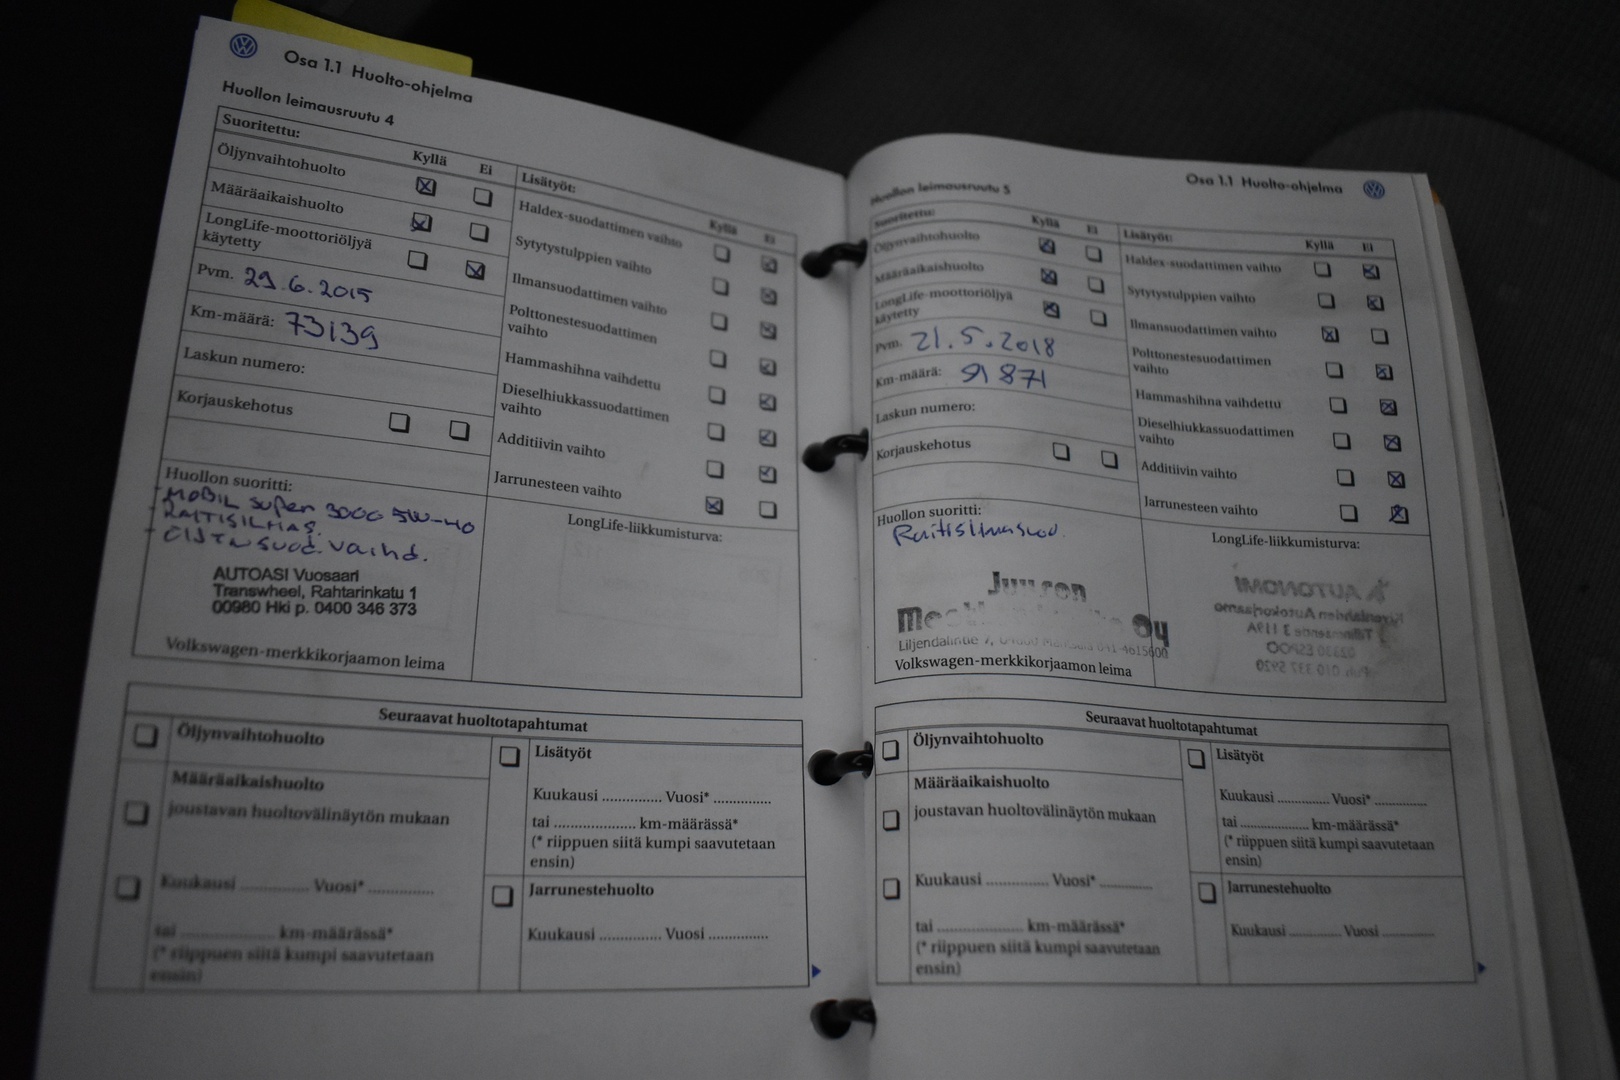 Osa 1.1 Huolto-ohjelma
Huollon leimausruutu 4
Suoritettu:
Kyllä Ei
Öljynvaihtohuolto
Määräaikaishuolto
LongLife-moottoriöljyä
käytetty
Pvm. 29.6.2015
Km-määrä: 73139
Laskun numero:
Korjauskehotus
Huollon suoritti:
- MOBIL super 3000 5W-40
- RAITISILMAS.
-
suod. vaihd.
AUTOASI Vuosaari
Transwheel, Rahtarinkatu 1
00980 Hki p. 0400 346 373
Volkswagen-merkkikorjaamon leima
Lisätyöt:
Kyllä Ei
Haldex-suodattimen vaihto
Sytytystulppien vaihto
Ilmansuodattimen vaihto
Polttonestesuodattimen
vaihto
Hammashihna vaihdettu
Dieselhiukkassuodattimen
vaihto
Additiivin vaihto
Jarrunesteen vaihto
LongLife-liikkumisturva:
Seuraavat huoltotapahtumat
Öljynvaihtohuolto
Määräaikaishuolto
joustavan huoltovälinäytön mukaan
Kuukausi .............. Vuosi* .............
tai ........................ km-määrässä*
(* riippuen siitä kumpi saavutetaan
ensin)
Lisätyöt
Kuukausi .............. Vuosi* .............
tai .................... km-määrässä*
(* riippuen siitä kumpi saavutetaan
ensin)
Jarrunestehuolto
Kuukausi .............. Vuosi .............
Osa 1.1 Huolto-ohjelma
Huollon leimausruutu 5
Suoritettu:
Kyllä Ei
Öljynvaihtohuolto
Määräaikaishuolto
LongLife-moottoriöljyä
käytetty
Pvm. 21.5.2018
Km-määrä: 91871
Laskun numero:
Korjauskehotus
Huollon suoritti:
Raitisilmasuod.
Juuson
Oy
Liljendalintie 7,
041-4615600
Volkswagen-merkkikorjaamon leima
Lisätyöt:
Kyllä Ei
Haldex-suodattimen vaihto
Sytytystulppien vaihto
Ilmansuodattimen vaihto
Polttonestesuodattimen
vaihto
Hammashihna vaihdettu
Dieselhiukkassuodattimen
vaihto
Additiivin vaihto
Jarrunesteen vaihto
LongLife-liikkumisturva:
AUTONOMI
02330 ESPOO
Puh. 010 337 5920
Seuraavat huoltotapahtumat
Öljynvaihtohuolto
Määräaikaishuolto
joustavan huoltovälinäytön mukaan
Kuukausi .............. Vuosi* .............
tai ...................... km-määrässä*
(* riippuen siitä kumpi saavutetaan
ensin)
Lisätyöt
Kuukausi .............. Vuosi* .............
tai .................... km-määrässä*
(* riippuen siitä kumpi saavutetaan
ensin)
Jarrunestehuolto
Kuukausi .............. Vuosi .............